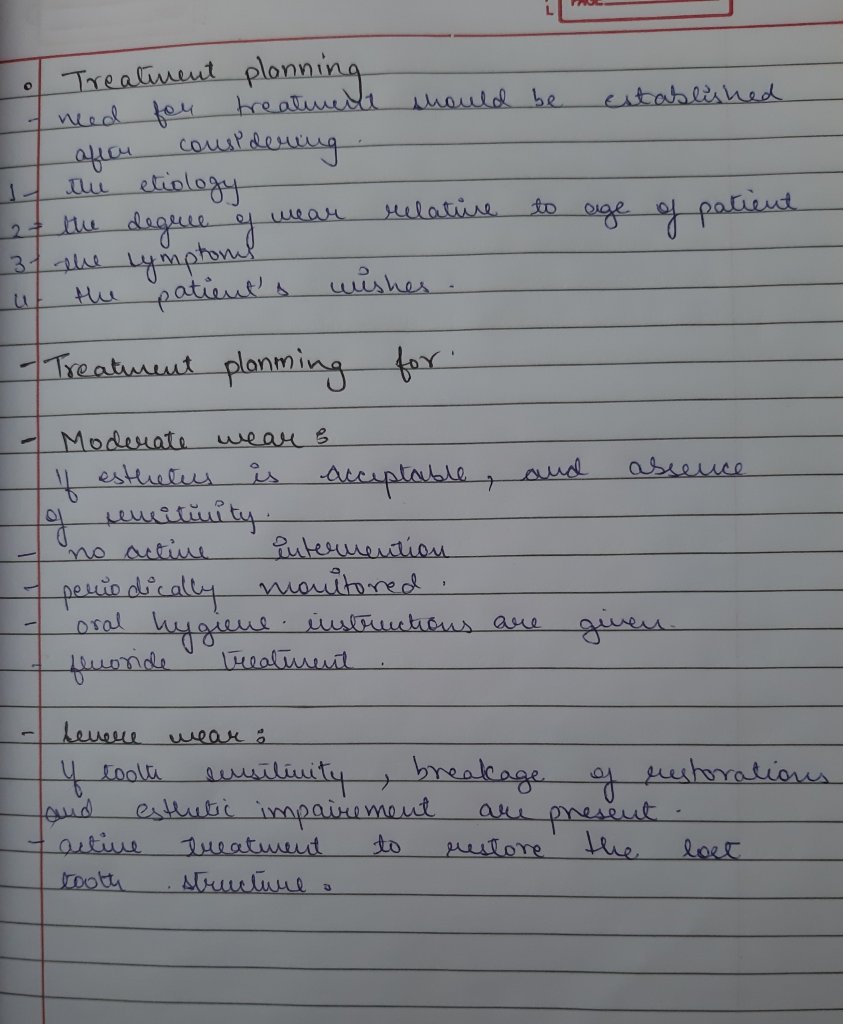 PAGE
° Treatment planning
- need for treatment should be established
after considering.
1- the etiology
2- the degree of wear relative to age of patient
3- the symptoms
4- the patient's wishes.
- Treatment planning for.
- Moderate wear :
If esthetics is acceptable, and absence
of sensitivity.
- no active intervention
- periodically monitored.
- oral hygiene instructions are given.
- fluoride treatment.
- Severe wear :
If tooth sensitivity, breakage of restorations
and esthetic impairement are present.
- active treatment to restore the lost
tooth structure.